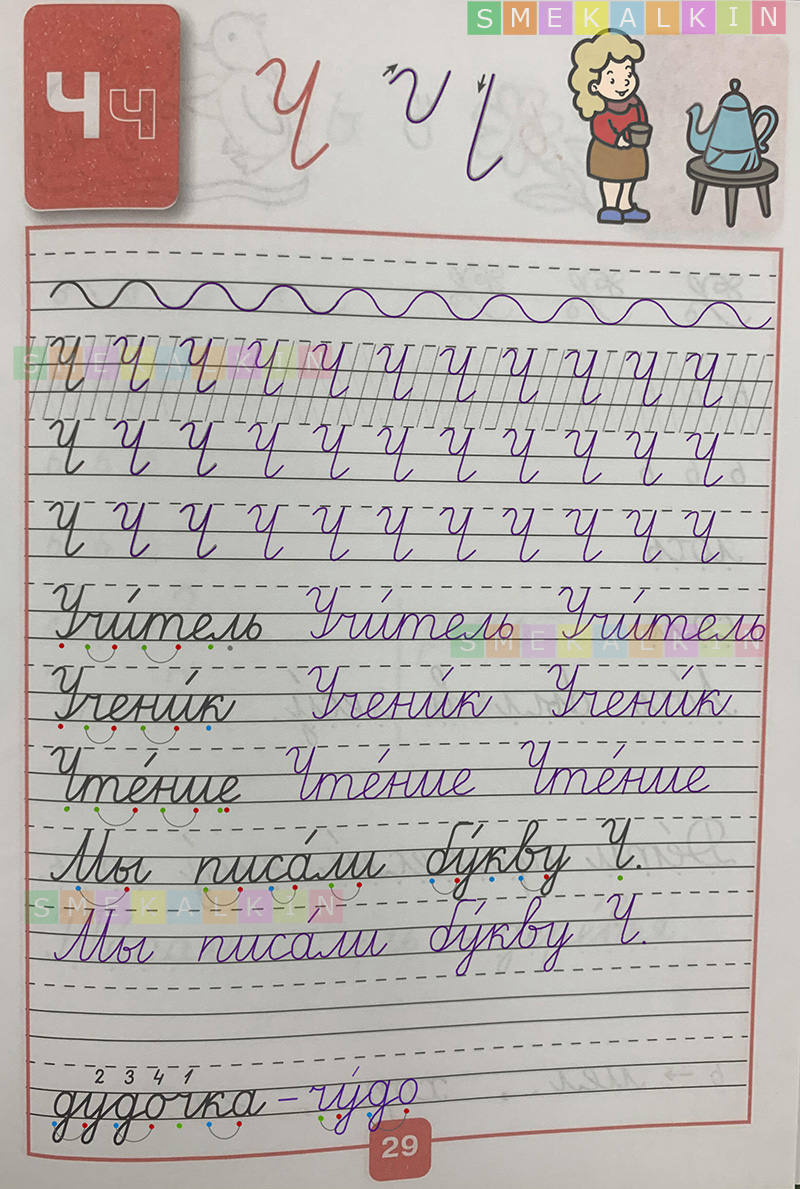 SMEKALKIN
Ч ч Ч
SMEKALKIN
Ч Ч Ч Ч Ч Ч Ч Ч Ч Ч Ч
Ч Ч Ч Ч Ч Ч Ч Ч Ч Ч Ч
Ч Ч Ч Ч Ч Ч Ч Ч Ч Ч Ч
Учи́тель Учи́тель Учи́тель
SMEKALKIN
Учени́к Учени́к Учени́к
Чте́ние Чте́ние Чте́ние
Мы писа́ли бу́кву Ч.
SMEKALKIN
Мы писа́ли бу́кву Ч.
2 3 4 1
дудочка – чу́до
29